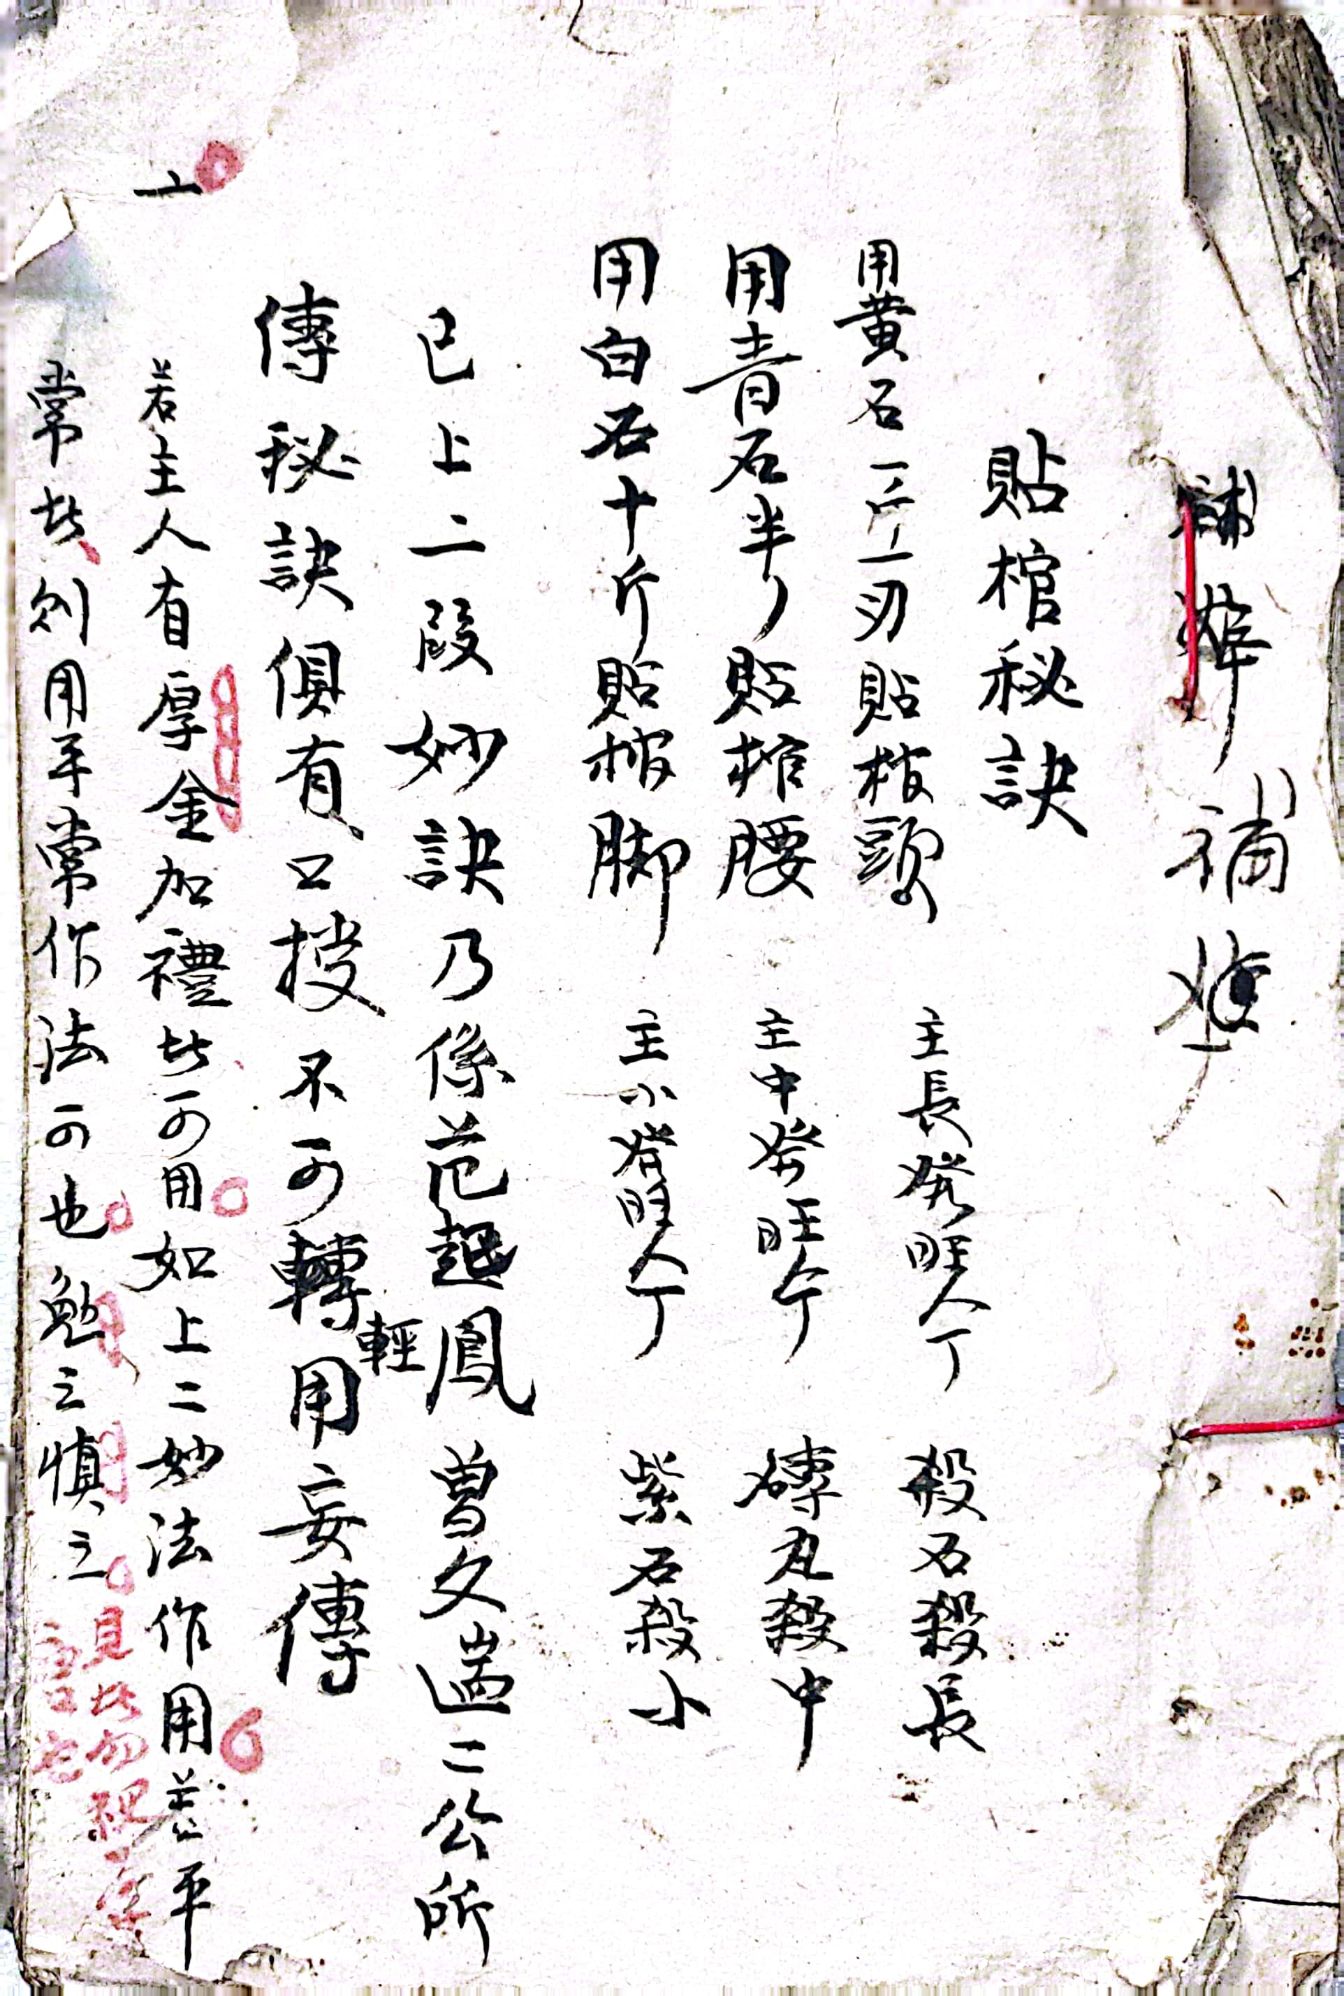 補
貼棺秘訣
用黃石一斤一刃貼棺頭 主長發旺人丁 殺石殺長
用青石半斤貼棺腰 主中發旺人丁 磚瓦殺中
用白石十斤貼棺脚 主小發旺人丁 紫石殺小
已上二段妙訣乃係范越鳳曾文遄二公所
傳秘訣俱有口授不可轉用妄傳
輕
一
若主人有厚金加禮此可用如上二妙法作用若平
常此則用平常作法可也勉之慎之
見此勿